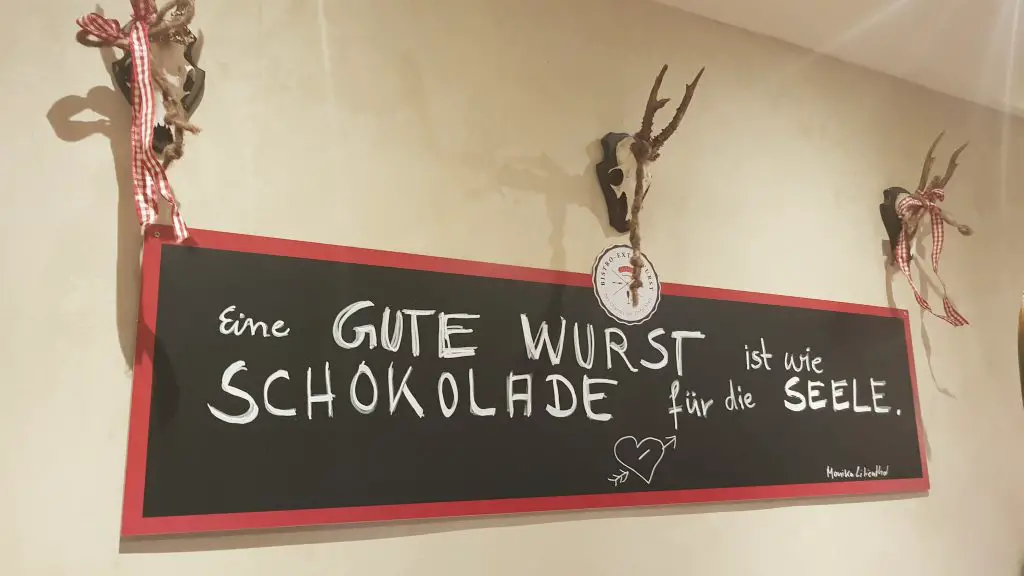 BISTRO EXTRAWURST
Eine GUTE WURST ist wie
SCHOKOLADE für die SEELE.
Monika